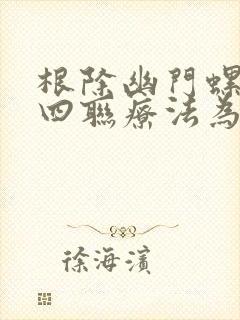 根除幽門螺
四聯療法為
徐海濱